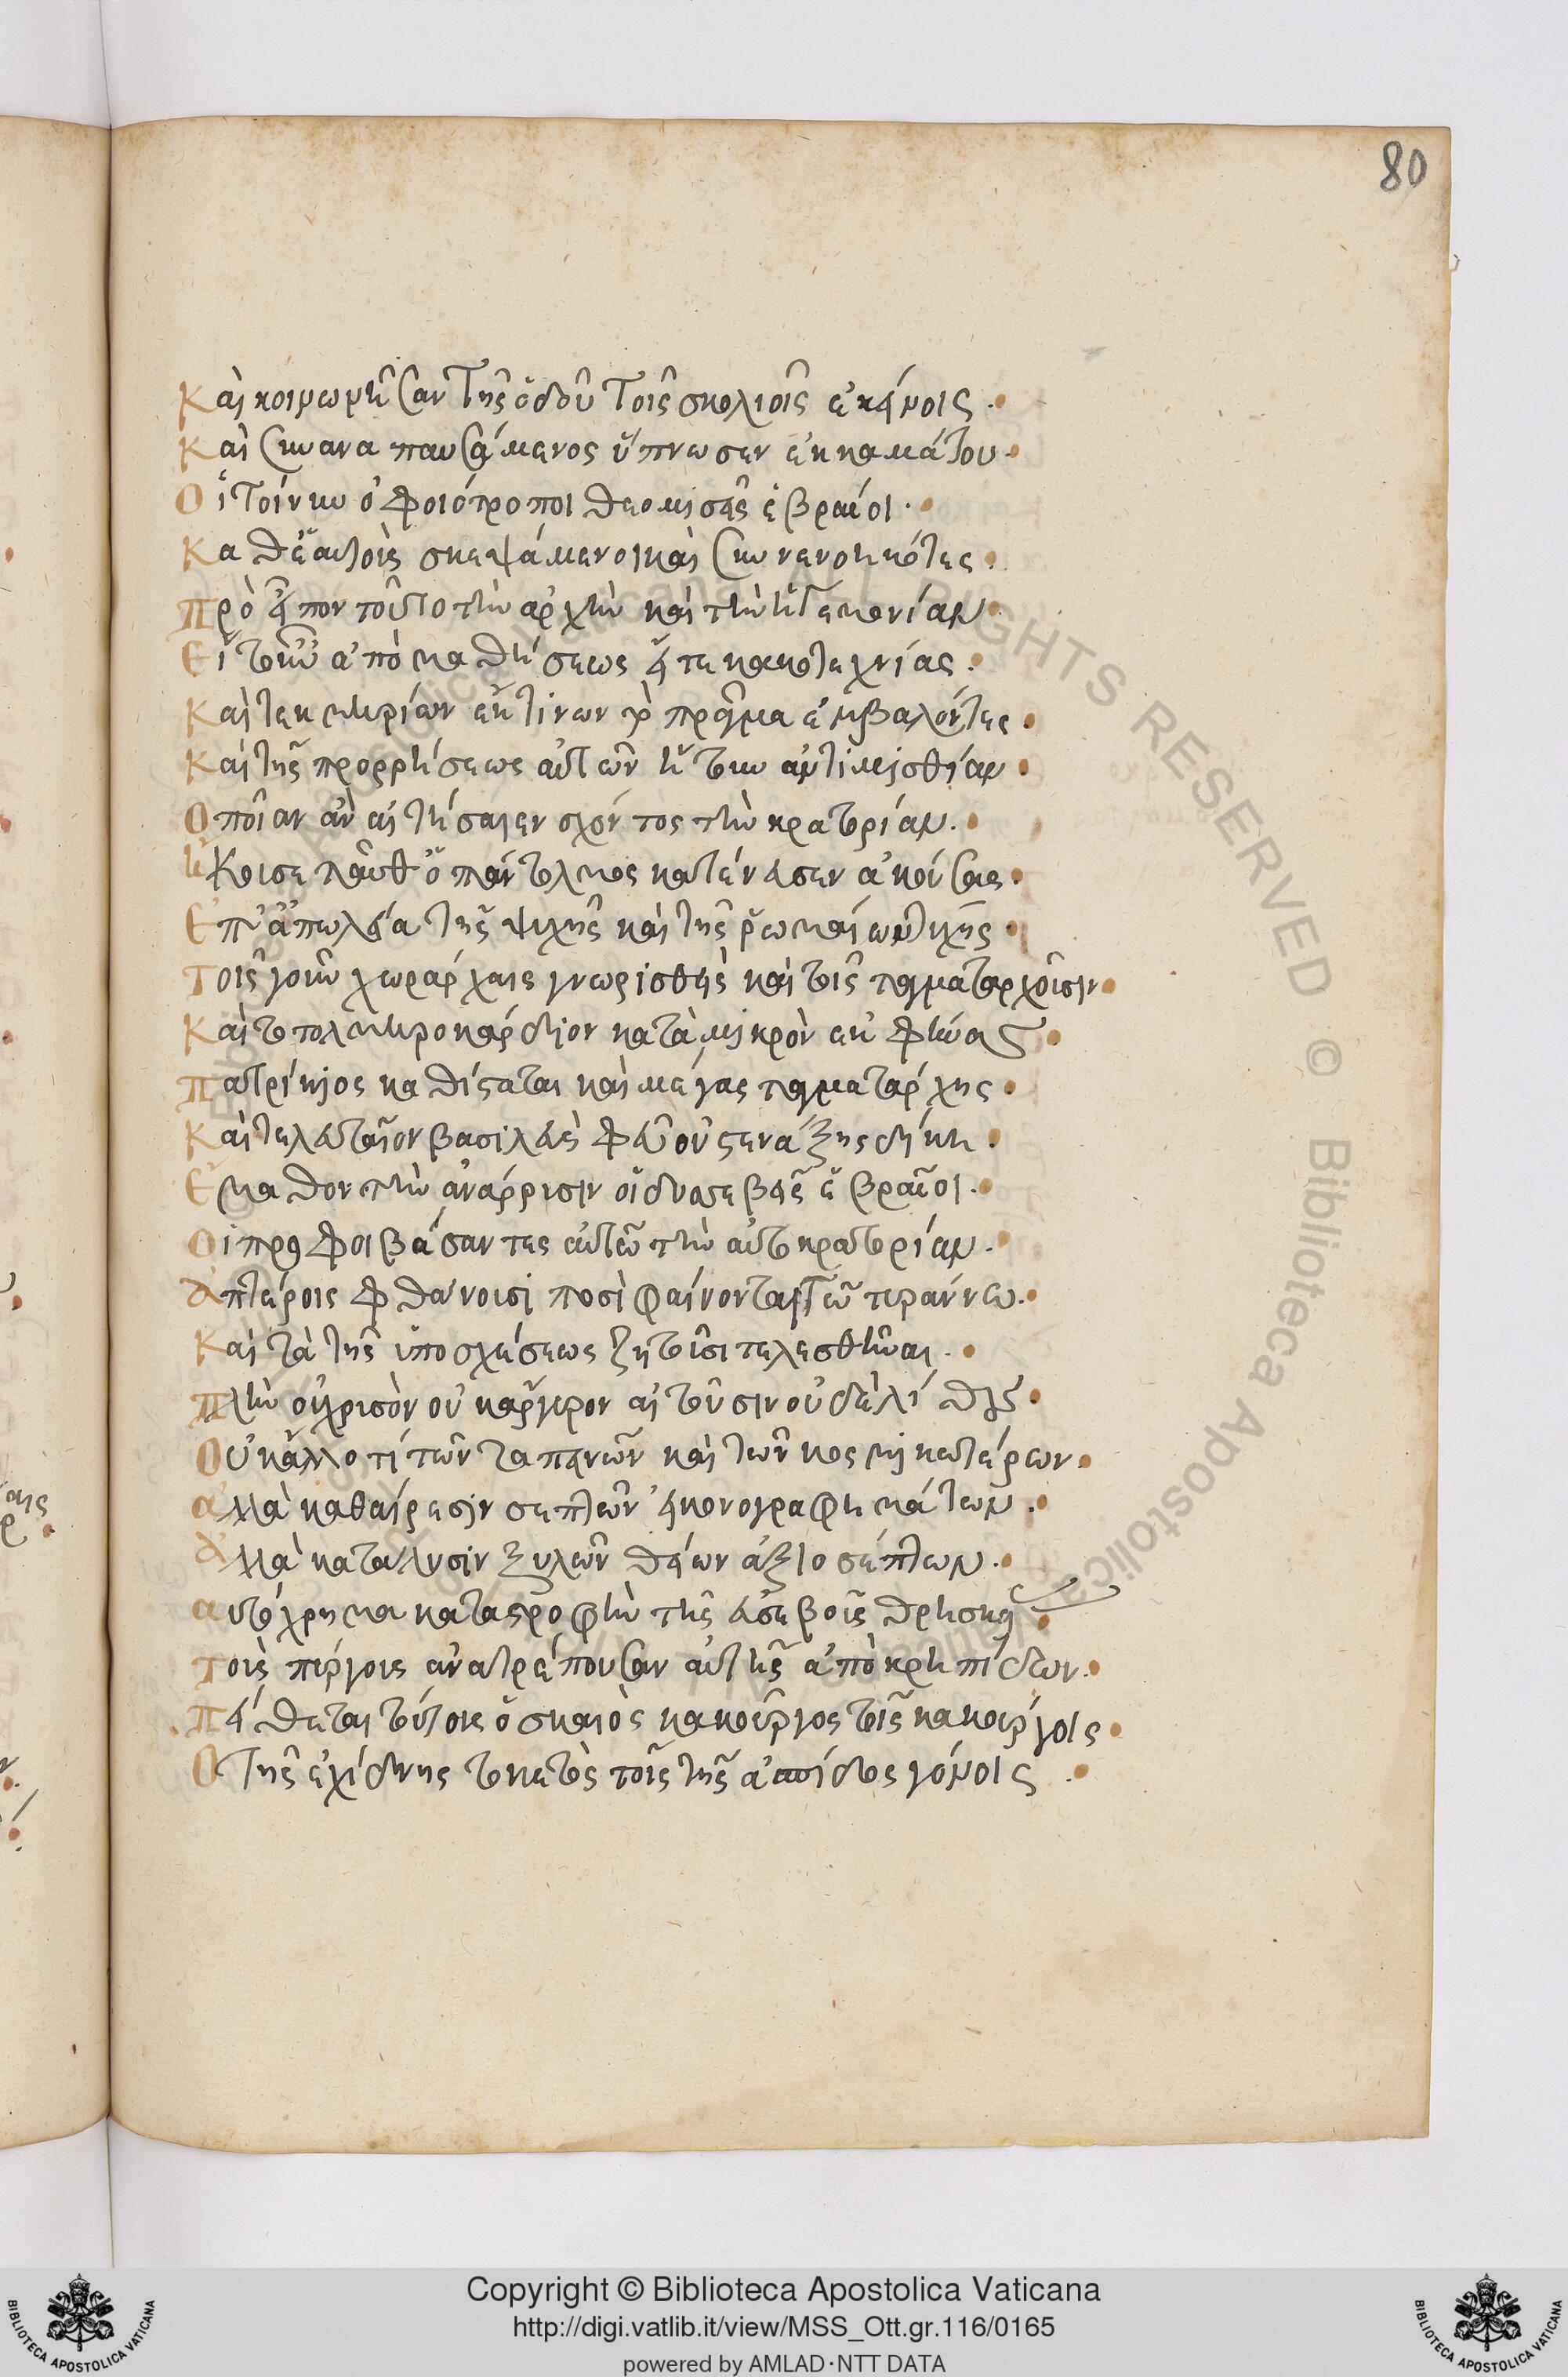 80
Καὶ κοινωνῆσαν τῆς ὁδοῦ τοῖς σκολιοῖς ἐκείνοις.
Καὶ συναναπαυσάμενος ὕπνωσεν ἐκ καμάτου.
Οἱ τοίνυν ὀφιότροποι θεομισεῖς ἑβραῖοι.
Καθ' ἑαυτοὺς σκεψάμενοι καὶ συννενοηκότες.
Προεῖπον τούτῳ τὴν ἀρχὴν καὶ τὴν ἡγεμονίαν.
Εἴτ' οὖν ἀπὸ μαθήσεως εἴτε κακοτεχνίας.
Καὶ τεκμηρίων ἔκ τινων τὸ πρᾶγμα ἐμβαλόντες.
Καὶ τῆς προρρήσεως αὐτῶν ἤτουν ἀντιμισθίαν.
Ὁποίαν ἂν αἰτήσαιεν σχόντος τὴν κρατορίαν.
Ἤκουσε ταῦθ' ὁ πάντολμος κατένευσεν ἀκούσας.
Ἐπ' ἀπωλείᾳ τῆς ψυχῆς καὶ τῆς ῥωμαίων τύχης.
Τοῖς γοῦν χωράρχαις γνωρισθεὶς καὶ τοῖς ταγματαρχοῦσιν.
Καὶ τὸ πολεμοκάρδιον κατὰ μικρὸν ἐκφήνας.
Πατρίκιος καθίσταται καὶ μέγας ταγματάρχης.
Καὶ τελευταῖον βασιλεὺς φεῦ οὐ στενάξεις δίκη.
Ἔμαθον τὴν ἀνάρρησιν οἱ δυσσεβεῖς ἑβραῖοι.
Οἱ προφοιβάσαντες αὐτῷ τὴν αὐτοκρατορίαν.
Ἀπτέροις φθάνουσι ποσὶ φαίνονται τῷ τυράννῳ.
Καὶ τὰ τῆς ὑποσχέσεως ζητοῦσι τελεσθῆναι.
Πλὴν οὐ χρυσὸν οὐκ ἄργυρον αἰτοῦσιν οὐδὲ λίθους.
Οὐκ ἄλλό τι τῶν ταπεινῶν καὶ τῶν κοσμικωτέρων.
ἀλλὰ καθαίρεσιν σεπτῶν εἰκονογραφημάτων.
Ἀλλὰ κατάλυσιν ξυλῶν θείων ἀξιοσέπτων.
αὐτόχρημα καταστροφὴν τῆς εὐσεβοῦς θρησκείας.
Τοὺς πύργους ἀνατρέπουσαν αὐτῆς ἀπὸ κρηπίδων.
Πείθεται τούτοις ὁ σκαιὸς κακοῦργος τοῖς κακούργοις.
Ὁ τῆς ἐχίδνης τοκετὸς τοῖς τῆς ἀσπίδος γόνοις.
Copyright © Biblioteca Apostolica Vaticana
http://digi.vatlib.it/view/MSS_Ott.gr.116/0165
powered by AMLAD·NTT DATA